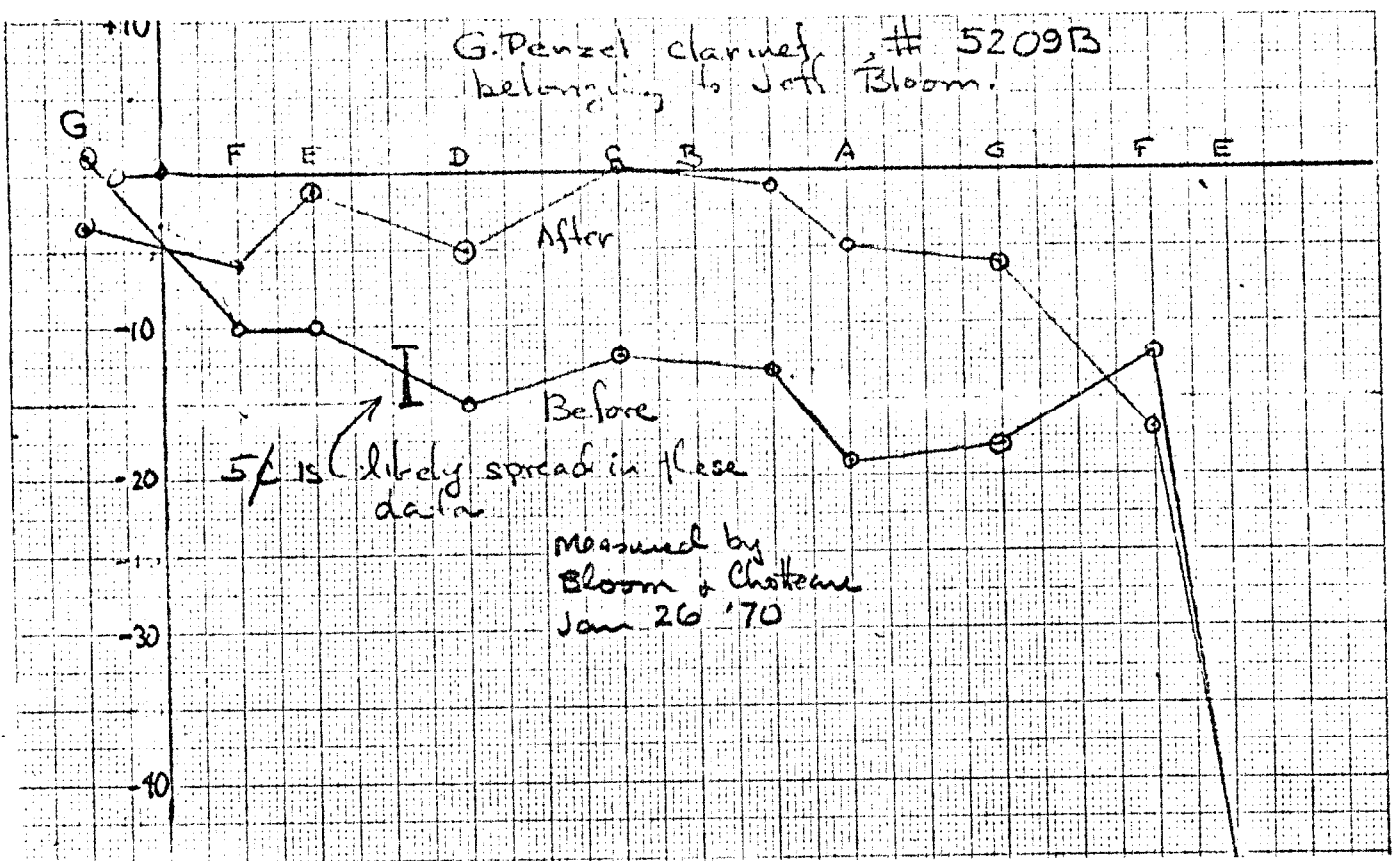 +10
G. Penzel clarinet, # 5209B
belonging to Jeff Bloom.
G
F E D C B A G F E
After
-10
Before
-20
5¢ is likely spread in these
data
Measured by
Bloom &
Jan 26 '70
-30
-40